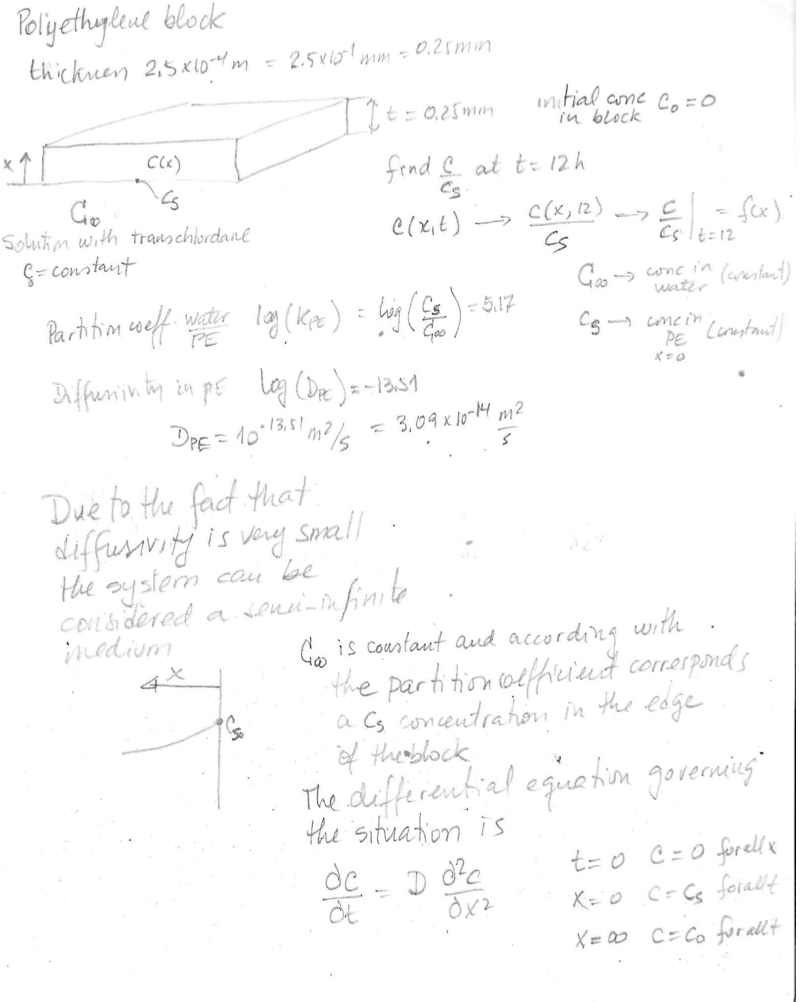 Polyethylene block
thicknen 2.5x10⁻⁴m = 2.5x10⁻¹ mm = 0.25mm
t = 0.25mm
initial conc C₀ = 0
in block
x
C(x)
Cs
find C/Cs at t= 12h
C∞
Solution with transchlordane
Cs = constant
C(x,t) → C(x,12)/Cs → C/Cs|t=12 = f(x)
C∞ → conc in water (constant)
Cs → conc in PE x=0 (constant)
Partition coeff. water/PE log(KPE) = log(Cs/C∞) = 5.17
Diffusivity in PE log(DPE) = -13.51
DPE = 10⁻¹³·⁵¹ m²/s = 3.09 x 10⁻¹⁴ m²/s
Due to the fact that
diffusivity is very small
the system can be
considered a semi-infinite
medium
x
Cs₀
C∞ is constant and according with
the partition coefficient corresponds
a Cs concentration in the edge
of the block
The differential equation governing
the situation is
∂c/∂t = D ∂²c/∂x²
t=0 C=0 for all x
x=0 C=Cs for all t
x=∞ C=C₀ for all t